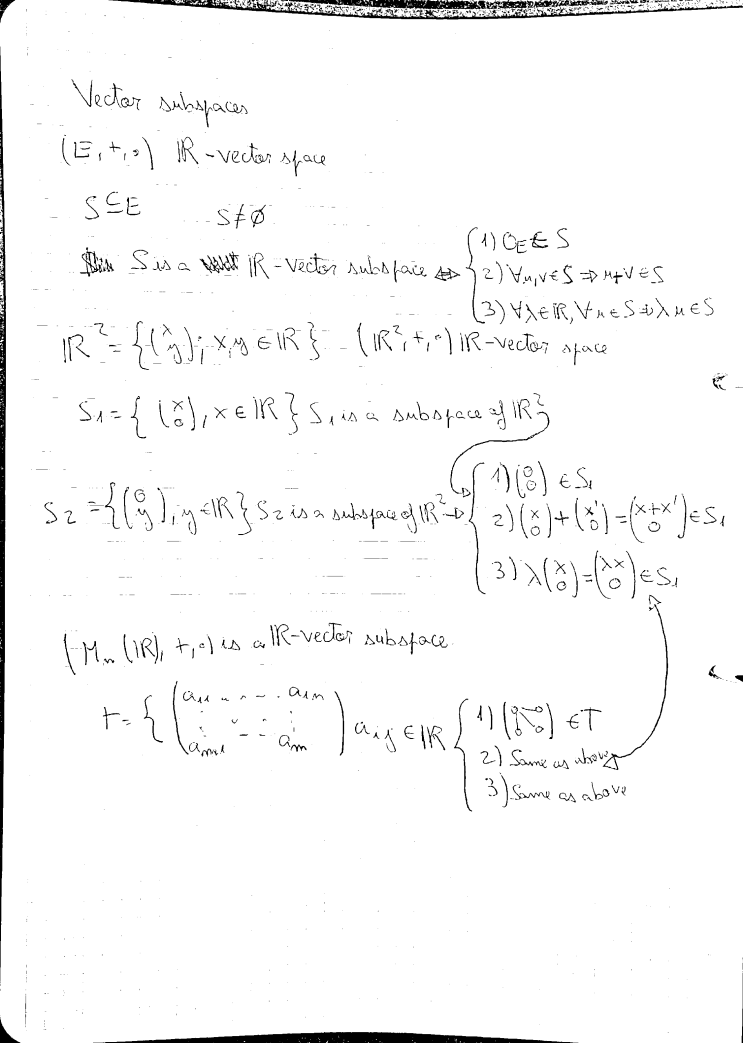 Vector subspaces
(E, +, ∘) IR-vector space
S ⊆ E S ≠ ∅
S is a IR-vector subspace ⇔ { 1) 0_E ∈ S
2) ∀u,v ∈ S ⇒ u+v ∈ S
3) ∀λ ∈ IR, ∀u ∈ S ⇒ λu ∈ S
IR² = { (x y); x,y ∈ IR } (IR², +, ∘) IR-vector space
S₁ = { (x 0), x ∈ IR } S₁ is a subspace of IR²
S₂ = { (0 y), y ∈ IR } S₂ is a subspace of IR² → { 1) (0 0) ∈ S₁
2) (x 0) + (x' 0) = (x+x' 0) ∈ S₁
3) λ(x 0) = (λx 0) ∈ S₁
(M_n (IR), +, ∘) is a IR-vector subspace.
T = { (a₁₁ - - - - a₁n
⋮ ⋱ - - ⋮
a_n₁ - - a_nn) a_ij ∈ IR { 1) (0 0 0 0) ∈ T
2) Same as above
3) Same as above